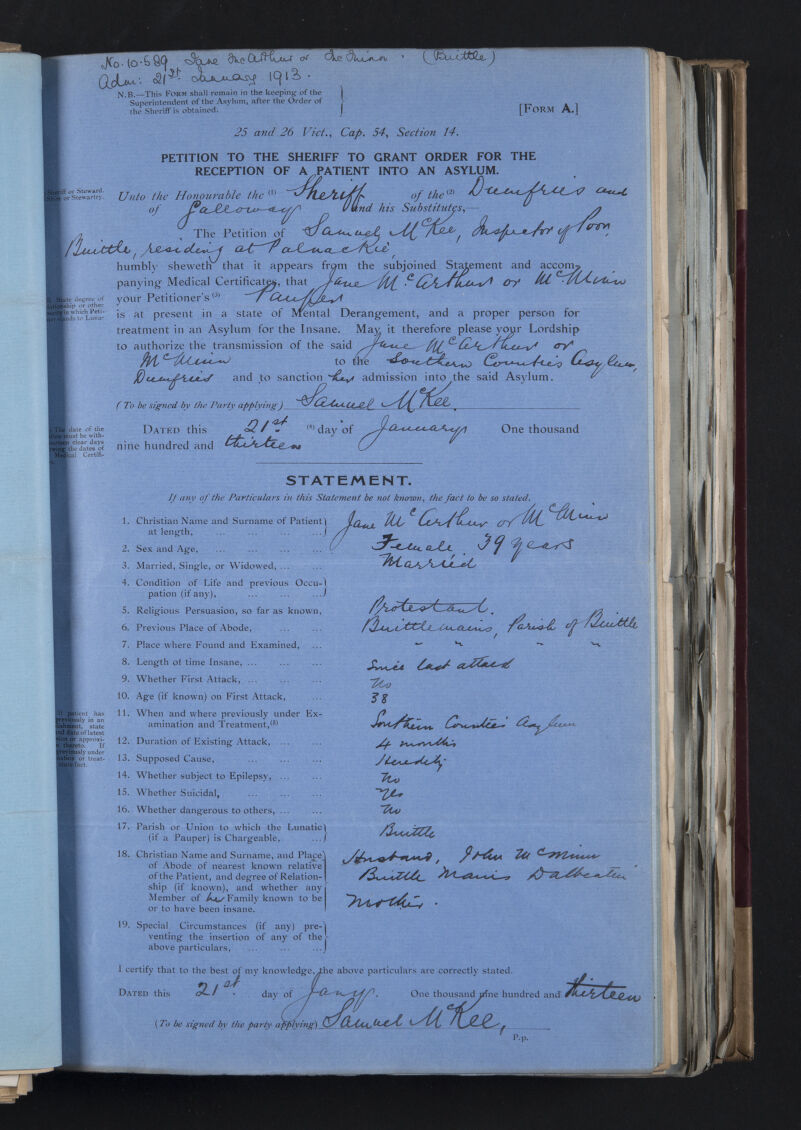 No. 10.589. Jane McArthur or McMinn. (Buittle)
Adm: 21st January 1913.
N.B.—This Form shall remain in the keeping of the
Superintendent of the Asylum, after the Order of
the Sheriff is obtained.
[Form A.]
25 and 26 Vict., Cap. 54, Section 14.
PETITION TO THE SHERIFF TO GRANT ORDER FOR THE
RECEPTION OF A PATIENT INTO AN ASYLUM.
or Steward.
or Stewartry.
Unto the Honourable the (1) Sheriff of the (2) Dumfries and
of Galloway and his Substitutes,—
The Petition of Samuel McKee, Inspector of Poor,
Buittle, residing at Palnackie,
humbly sheweth that it appears from the subjoined Statement and accom-
panying Medical Certificates, that Jane McArthur or McMinn
State degree of
or other
in which Peti-
stands to Luna-
your Petitioner's (3) Pauper
is at present in a state of Mental Derangement, and a proper person for
treatment in an Asylum for the Insane. May it therefore please your Lordship
to authorize the transmission of the said Jane McArthur or
McMinn to the Southern Counties Asylum,
Dumfries and to sanction her admission into the said Asylum.
(To be signed by the Party applying) Samuel McKee.
The date of the
must be with-
clear days
the dates of
Medical Certifi-
Dated this 21st (4) day of January One thousand
nine hundred and thirteen
STATEMENT.
If any of the Particulars in this Statement be not known, the fact to be so stated.
1. Christian Name and Surname of Patient
at length, ... ... ... ... Jane McArthur or McMinn
2. Sex and Age, ... ... ... ... Female. 39 years
3. Married, Single, or Widowed, ... ... Married
4. Condition of Life and previous Occu-
pation (if any), ... ... ...
5. Religious Persuasion, so far as known, Protestant.
6. Previous Place of Abode, ... ... Buittlemains, Parish of Buittle
7. Place where Found and Examined, ... " " " "
8. Length of time Insane, ... ... ... Since last attack
9. Whether First Attack, ... ... ... No
10. Age (if known) on First Attack, ... 38
If patient has
previously in an
state
and date of latest
or approxi-
thereto. If
previously under
or treat-
state fact.
11. When and where previously under Ex-
amination and Treatment,(5) Southern Counties Asylum
12. Duration of Existing Attack, ... ... 4 months
13. Supposed Cause, ... ... ... Heredity
14. Whether subject to Epilepsy, ... ... No
15. Whether Suicidal, ... ... ... Yes
16. Whether dangerous to others, ... ... No
17. Parish or Union to which the Lunatic
(if a Pauper) is Chargeable, ... Buittle
18. Christian Name and Surname, and Place
of Abode of nearest known relative
of the Patient, and degree of Relation-
ship (if known), and whether any
Member of her Family known to be
or to have been insane.
Husband, John McMinn
Buittle Mains Dalbeattie
Mother.
19. Special Circumstances (if any) pre-
venting the insertion of any of the
above particulars, ... ... ...
I certify that to the best of my knowledge, the above particulars are correctly stated.
Dated this 21st. day of Jany. One thousand nine hundred and thirteen
(To be signed by the party applying) Samuel McKee,
P.p.